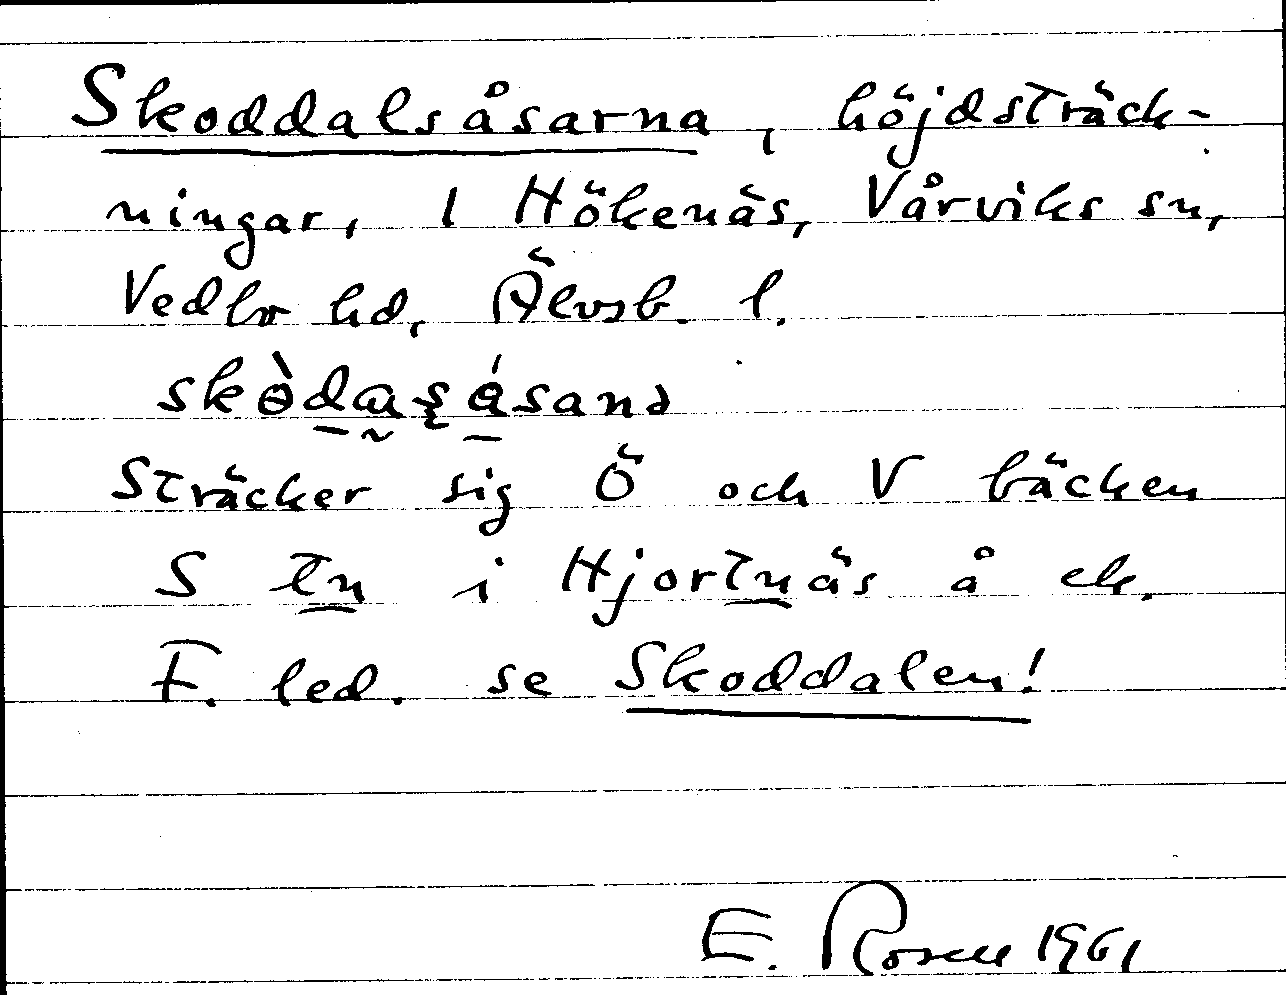 Skoddalsåsarna, höjdsträck-
ningar, 1 Hökenäs, Vårviks sn,
Vedbo hd, Älvsb. l.
Sträcker sig Ö och V bäcken
S tn i Hjortnäs å ek.
F. led. se Skoddalen!
E. Rosell 1961